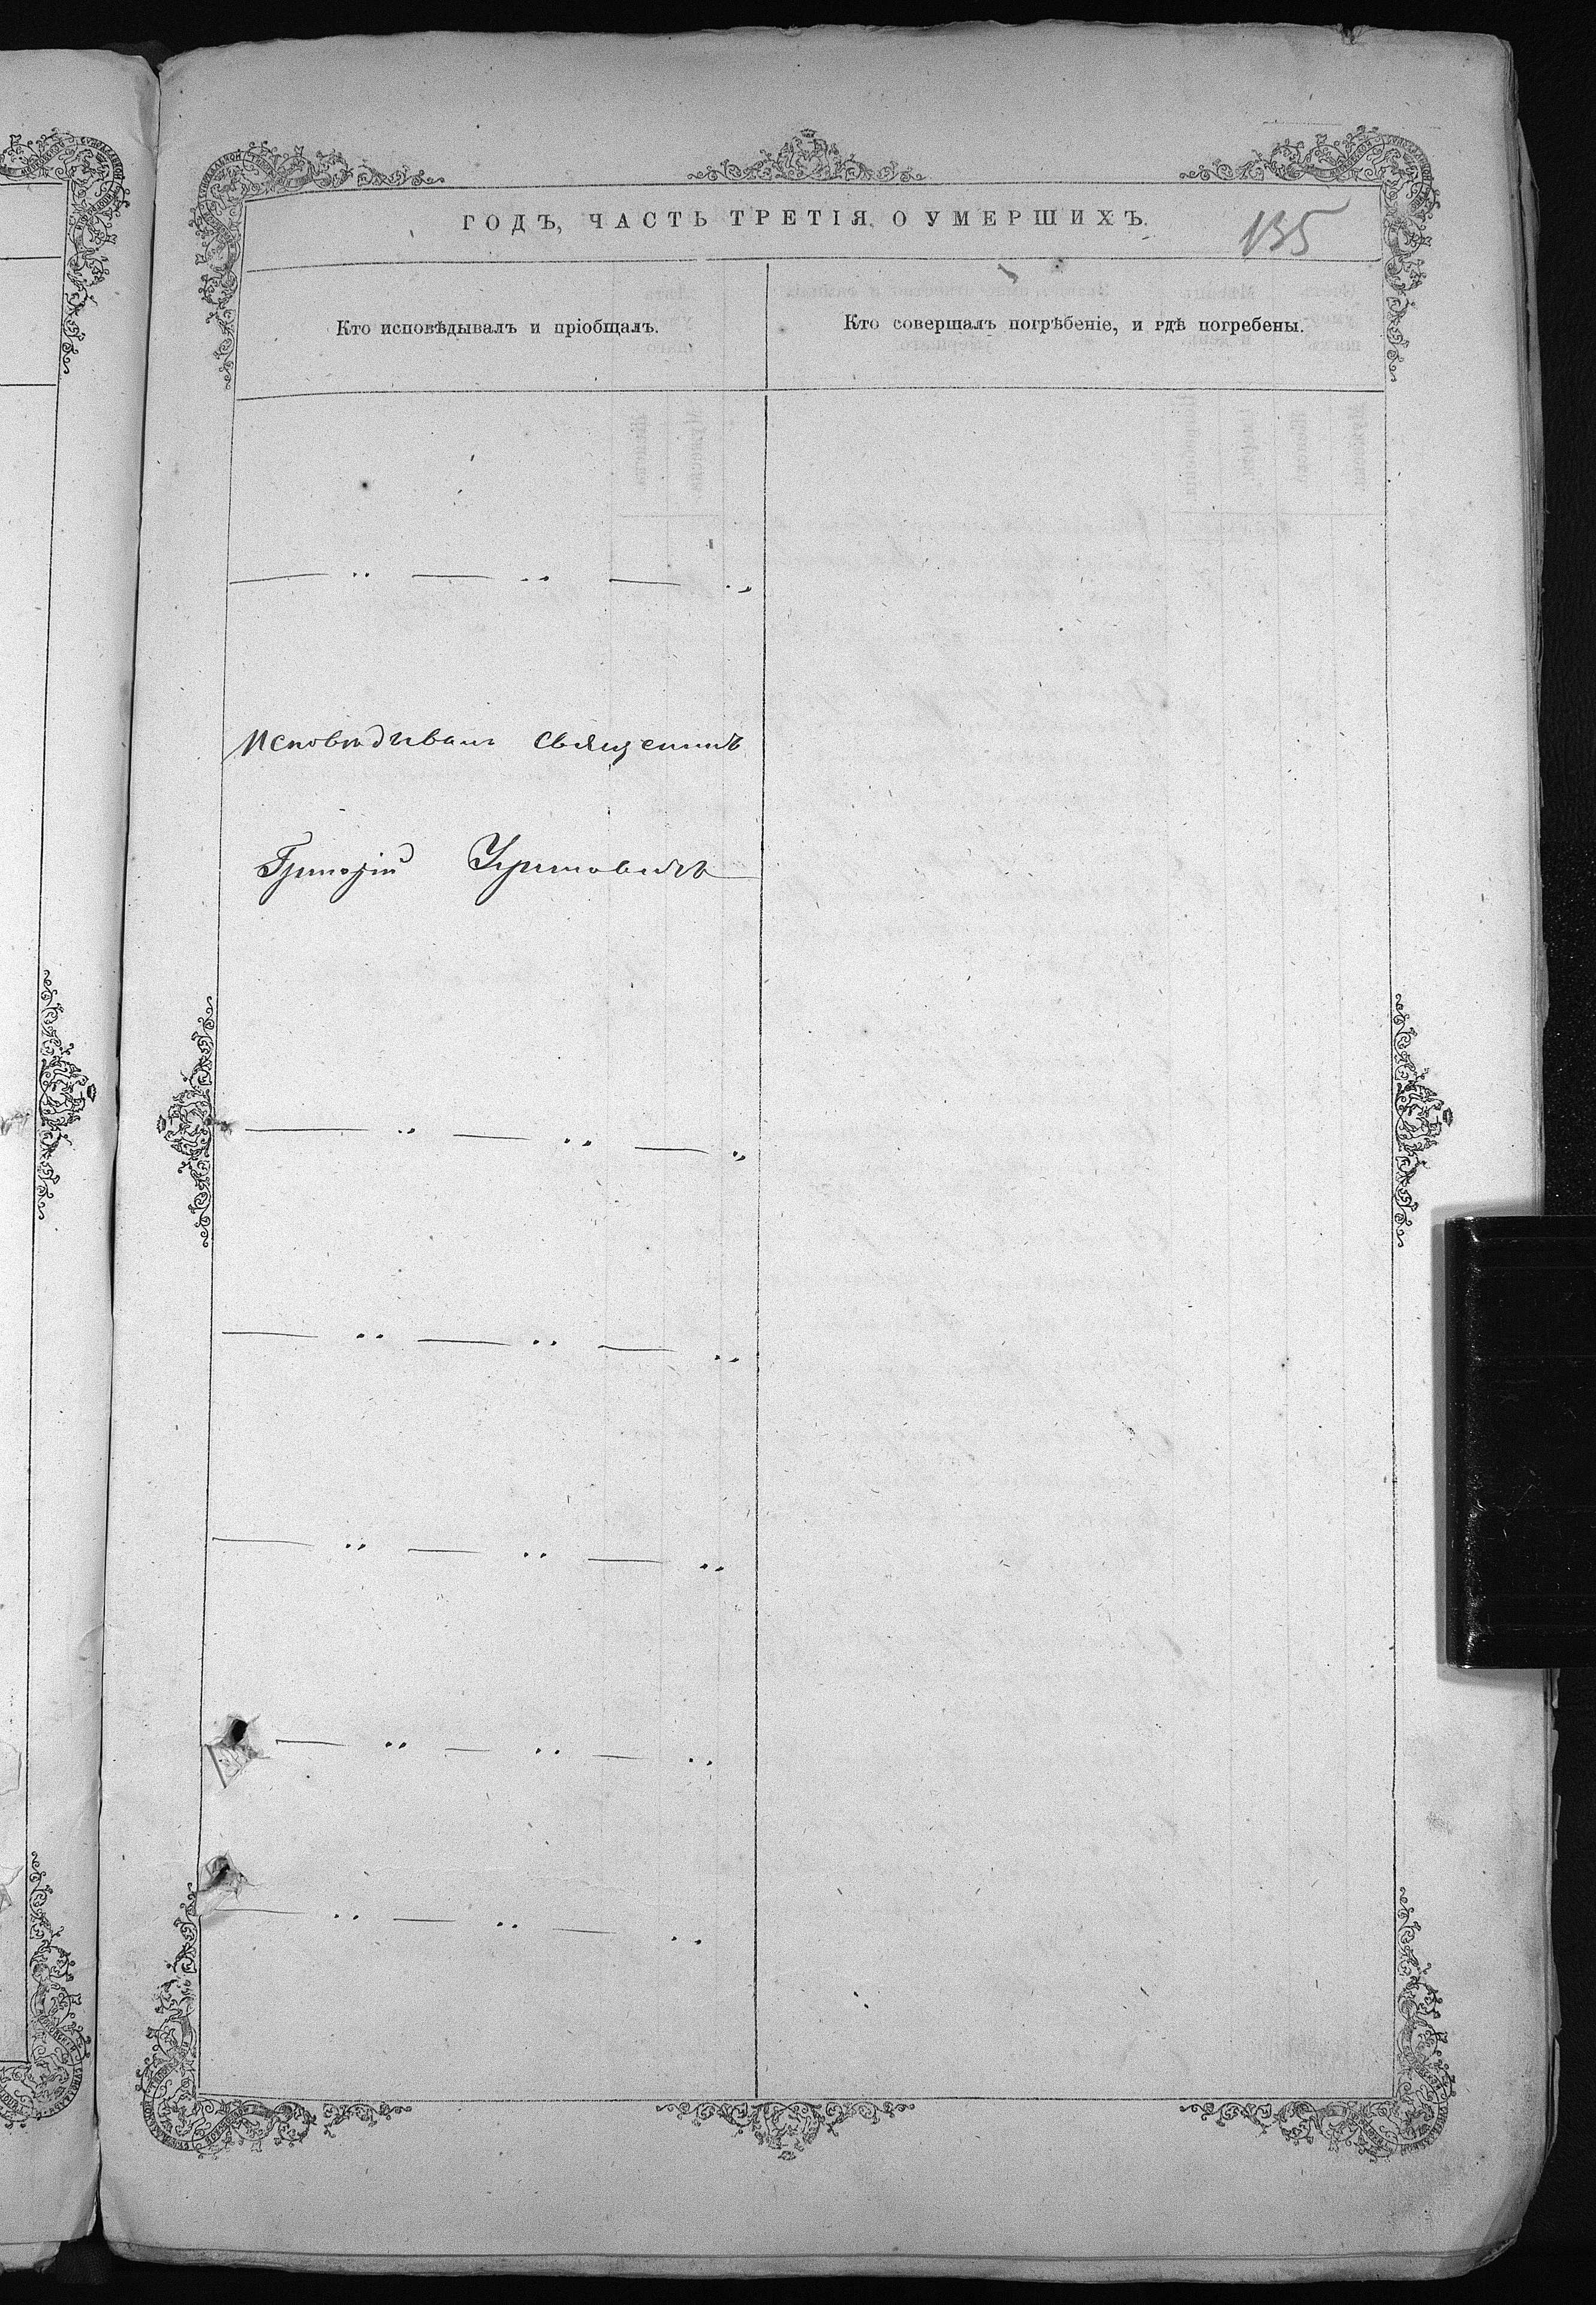 ГОДЪ, ЧАСТЬ ТРЕТІЯ, О УМЕРШИХЪ.
135
Кто исповѣдывалъ и пріобщалъ.
Кто совершалъ погрѣбеніе, и гдѣ погребены.
— " — " — "
Исповѣдывалъ Священникъ
Григорій
— " — " — "
— " — " — "
— " — " — "
— " — " — "
— " — " — "